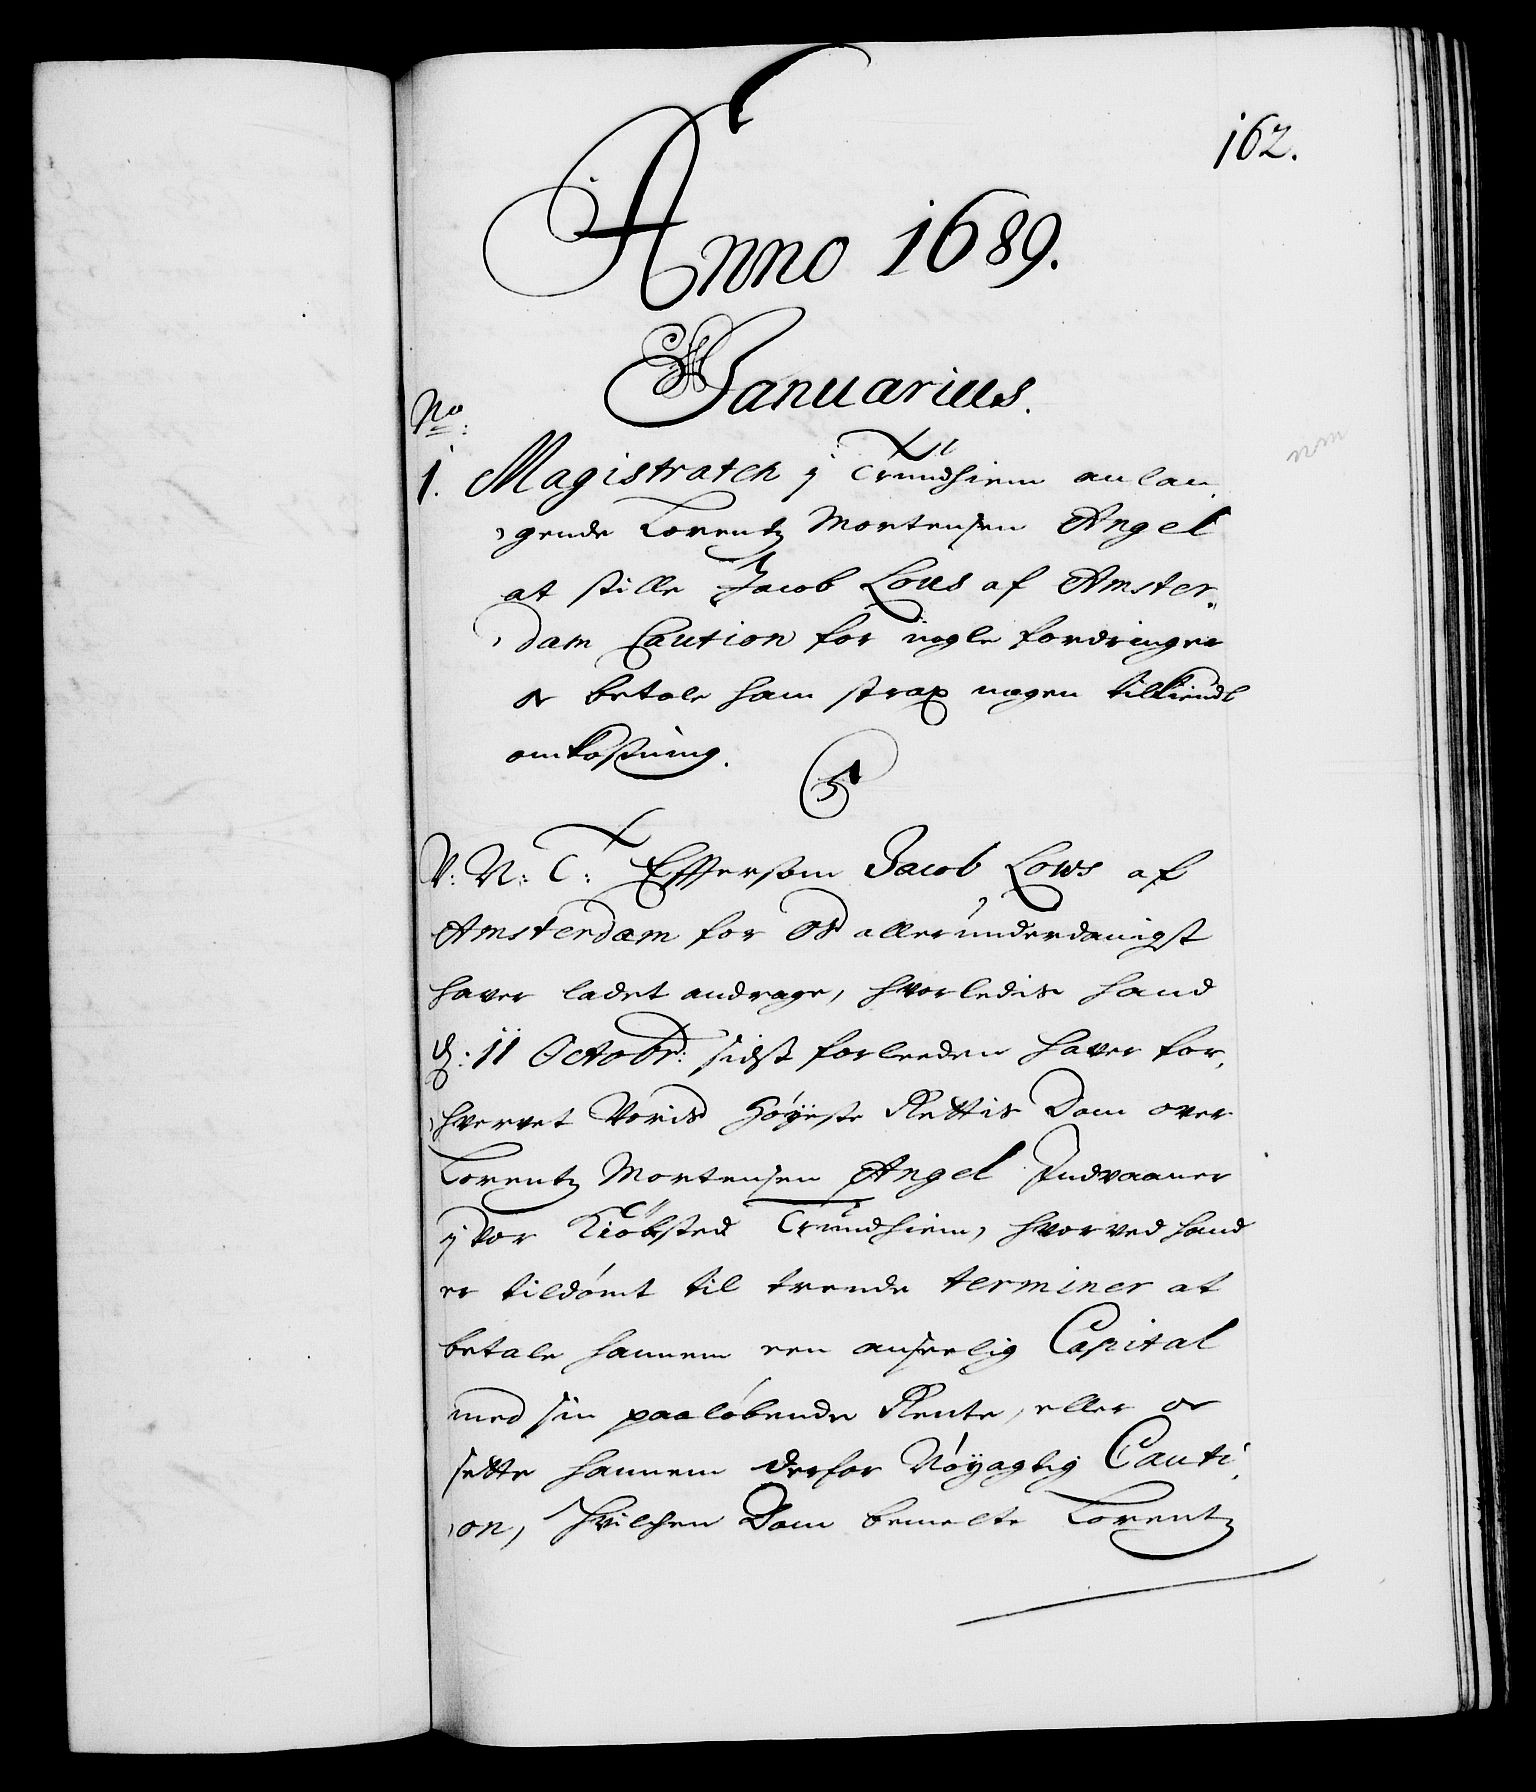 162.
Anno 1689.
Januarius.
No:
1. Magistraten i Trundhiem anlan-
gende Lorentz Mortensen Angel
at stille Jacob Lous af Amster-
dam Caution for nogle fordringer
oc betale ham strax nogen tilkiendt
omkostning.
V: N: T: Eftersom Jacob Lows af
Amsterdam for Os allerunderdanigst
haver ladet andrage, hvorledis hand
d: 11 Octobr: sidst forleeden haver for-
hvervet Voris Høyeste Rettis Dom over
Lorentz Mortensen Angel Indvaaner
i vor Kiøbsted Trundhiem, hvorved hand
er tildømt til trende terminer at
betale hannem een anseelig Capital
med sin paaløbende Rente, eller oc
sette hannem derfor Nøyagtig Cauti-
on, Hvilchen Dom bemelte Lorentz